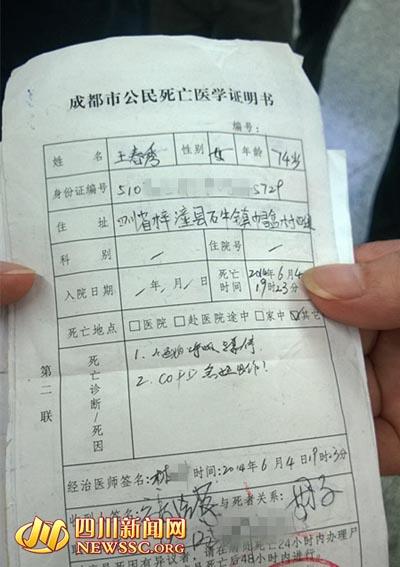 成都市公民死亡医学证明书
编号：
姓 名 王春秀 性别 女 年龄 74岁
身份证编号 510 5729
住 址 四川省梓潼县石牛镇
科 别 / 住院号 /
入院日期 /年/月/日 死亡时间 2014年6月4 19时23分
死亡地点 □医院 □赴医院途中 □家中 ☑其它
第二联
死亡诊断/死因
1.
2. COPD
经治医师签名： 时间：2014年6月4日19时23分
签名： 与死者关系：母子
死亡24小时内办理尸
死亡后48小时内进行。
四川新闻网
NEWSSC.ORG